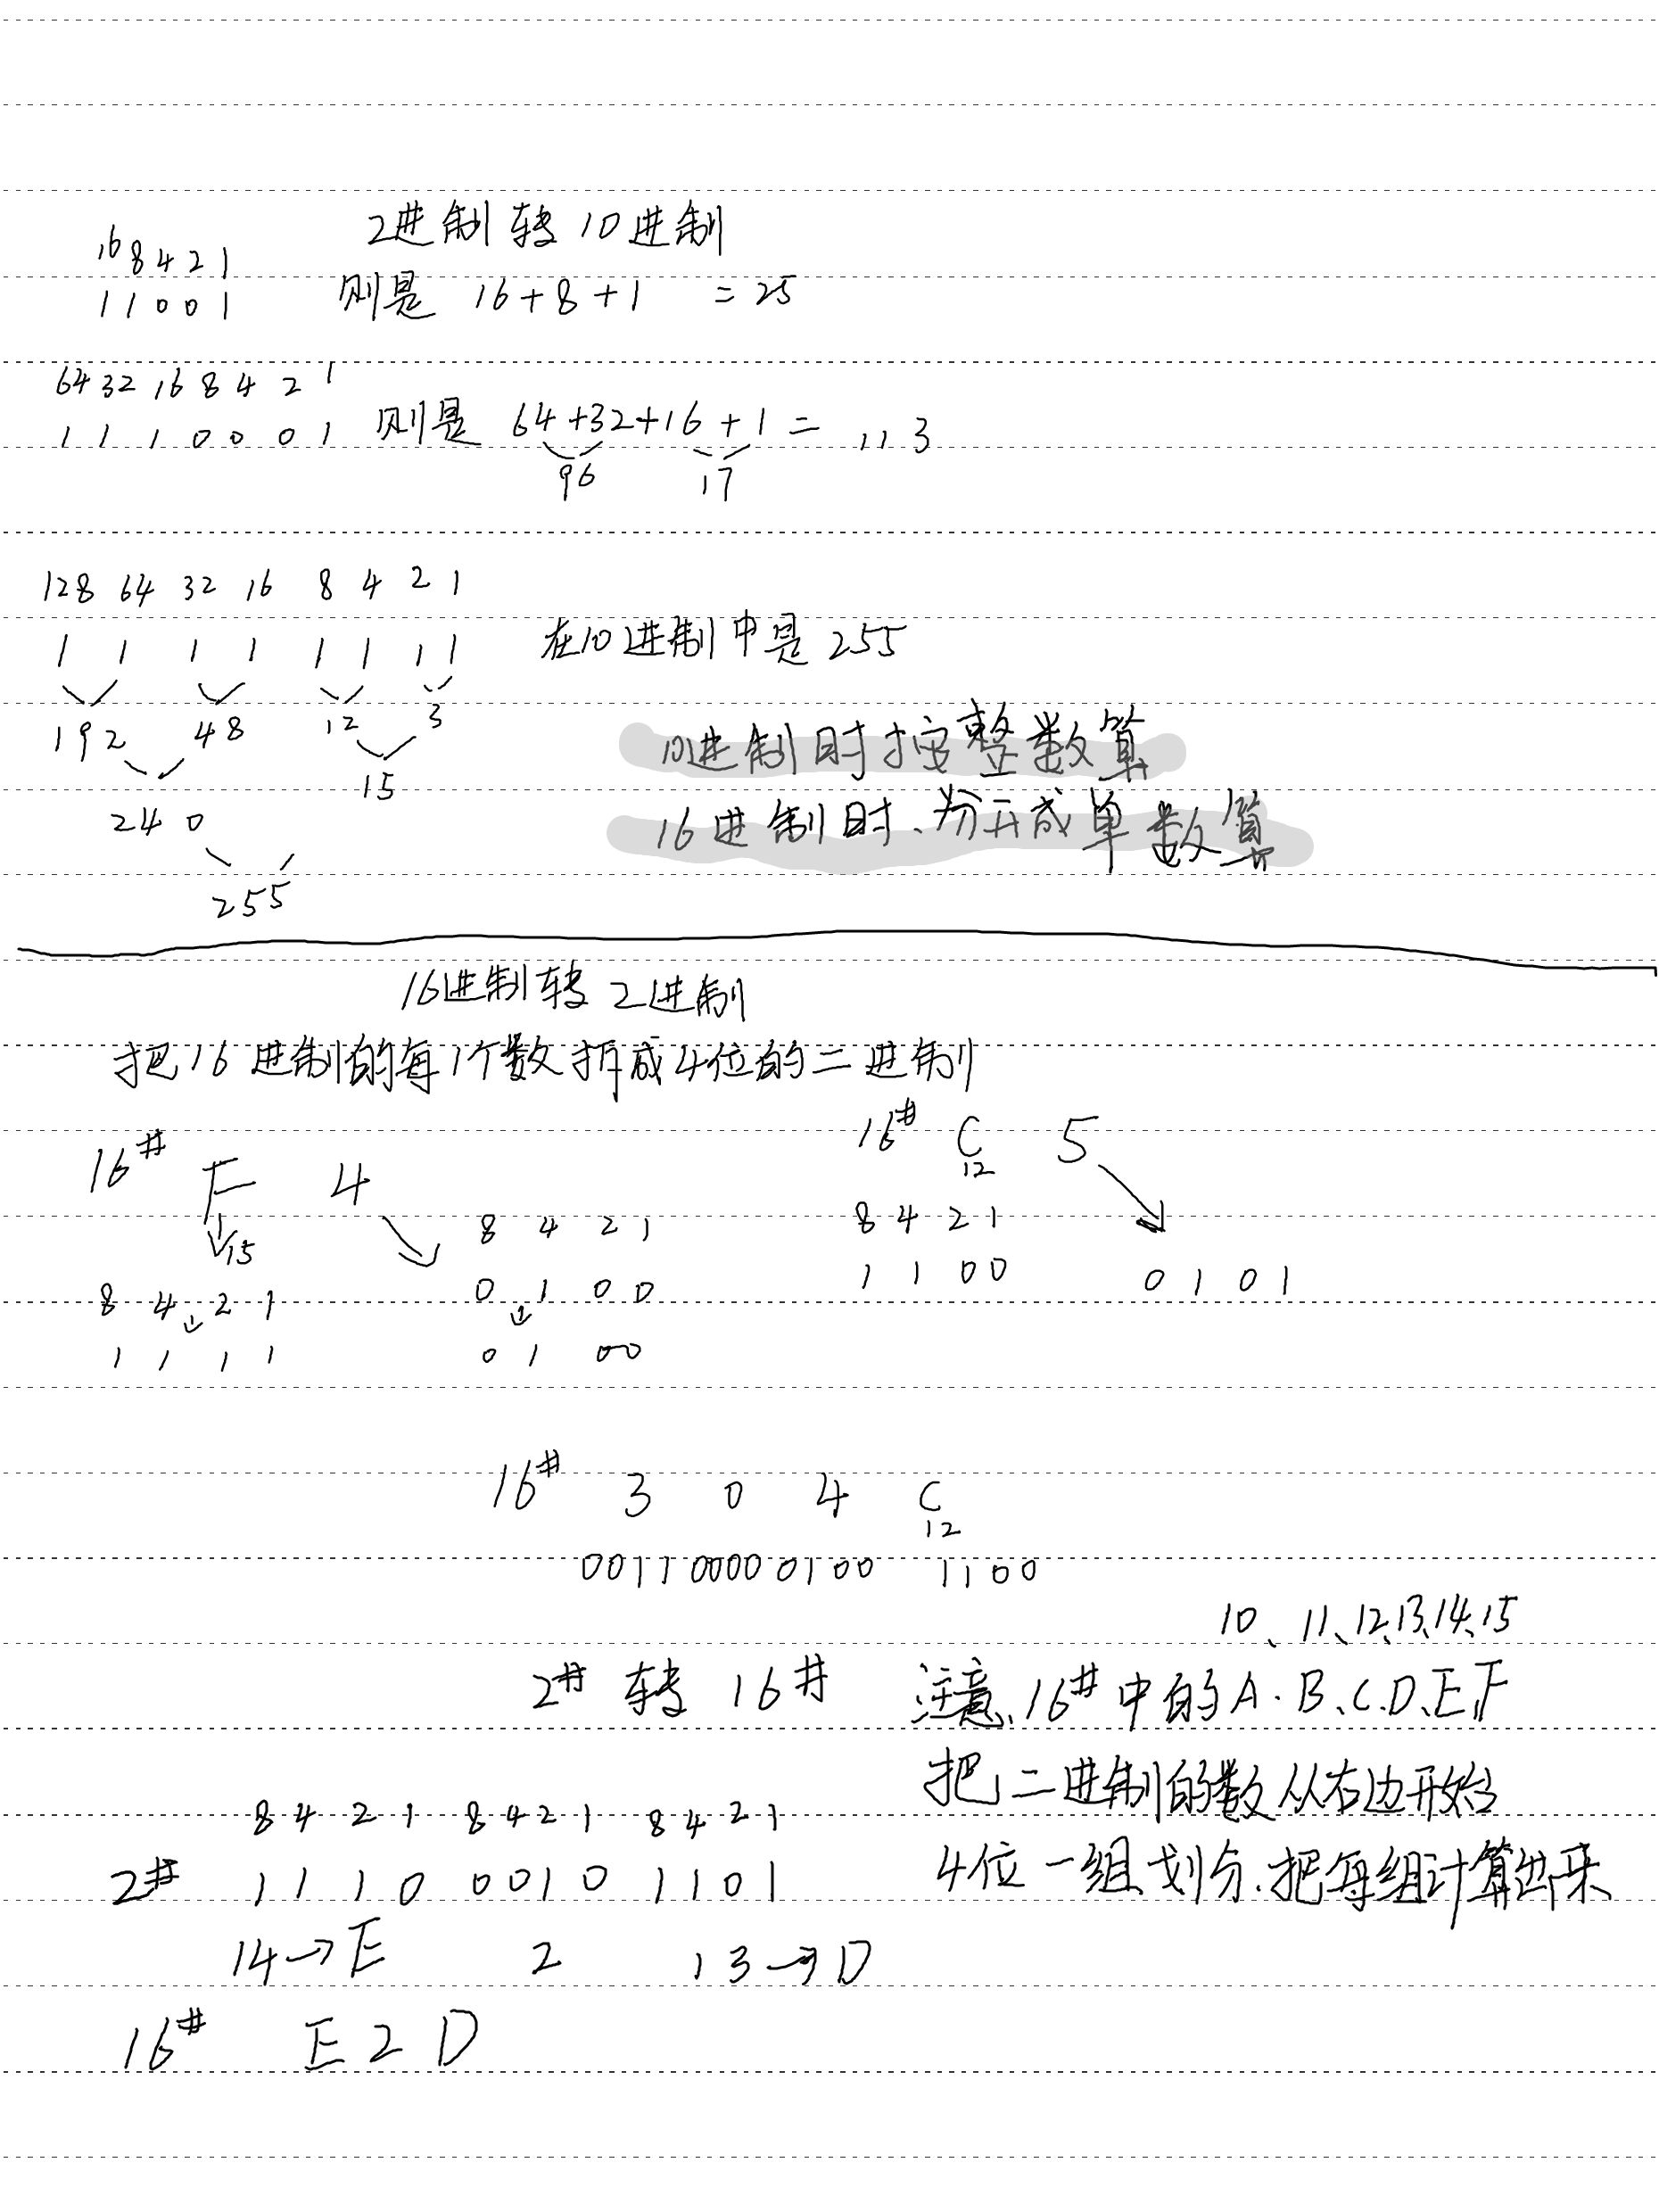 2进制转10进制
16 8 4 2 1
1 1 0 0 1 则是 16+8+1 =25
64 32 16 8 4 2 1
1 1 1 0 0 0 1 则是 64+32+16+1= 113
96 17
128 64 32 16 8 4 2 1
1 1 1 1 1 1 1 1 在10进制中是255
192 48 12 3
10进制时按整数算
15
240
16进制时、分开成单数算
255
16进制转2进制
把16进制的每1个数拆成4位的二进制
16# F 4
15
8 4 2 1
1 1 1 1
8 4 2 1
0 1 0 0
0 1 0 0
16# C 5
12
8 4 2 1
1 1 0 0 0 1 0 1
16# 3 0 4 C
12
0011 0000 0100 1100
10、11、12、13、14、15
2# 转 16# 注意、16#中的A.B、C.D、E、F
把二进制的数从右边开始
4位一组划分.把每组计算出来
8 4 2 1 8 4 2 1 8 4 2 1
2# 1 1 1 0 0 0 1 0 1 1 0 1
14→E 2 13→D
16# E2D